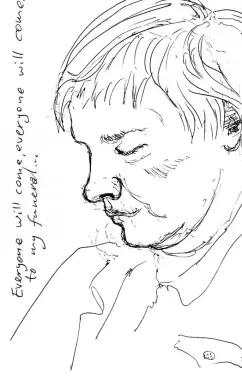 Everyone will come, everyone will come,
to my funeral...